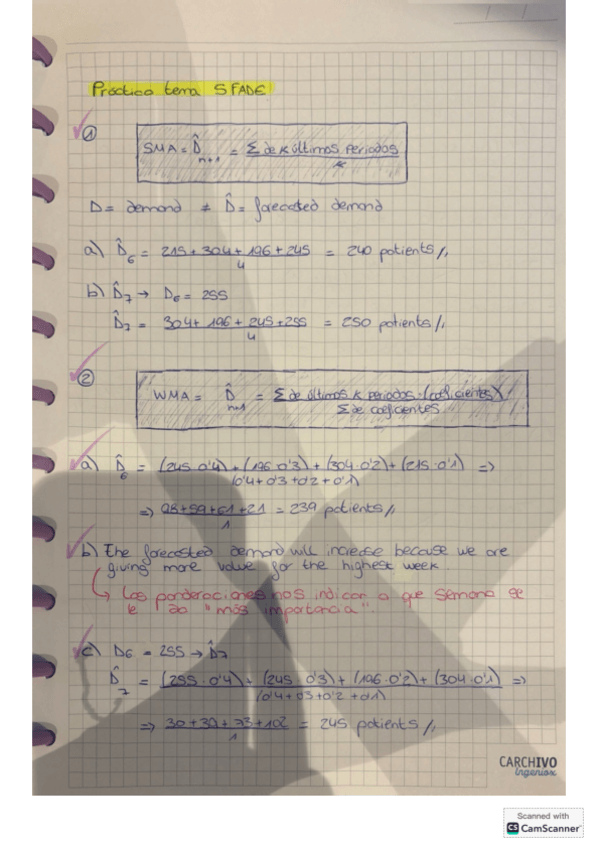 Práctica tema 5 FADE
①
SMA = D̂ n+1 = Σ de K últimos periodos / K
D = demand ≠ D̂ = forecasted demand
a) D̂6 = (215 + 304 + 196 + 245) / 4 = 240 patients //
b) D̂7 → D6 = 255
D̂7 = (304 + 196 + 245 + 255) / 4 = 250 patients //
②
WMA = D̂ n+1 = Σ de últimos K periodos · (coeficientes) / Σ de coeficientes
a) D̂6 = (245 · 0'4) + (196 · 0'3) + (304 · 0'2) + (215 · 0'1) / (0'4 + 0'3 + 0'2 + 0'1) =>
=> (98 + 59 + 61 + 21) / 1 = 239 patients //
b) The forecasted demand will increase because we are
giving more value for the highest week.
↳ Las ponderaciones nos indican a que semana se
le da "más importancia".
c) D6 = 255 → D̂7
D̂7 = (255 · 0'4) + (245 · 0'3) + (196 · 0'2) + (304 · 0'1) / (0'4 + 0'3 + 0'2 + 0'1) =>
=> (30 + 39 + 73 + 102) / 1 = 245 patients //
CARCHIVO
Ingeniox
Scanned with
CS CamScanner